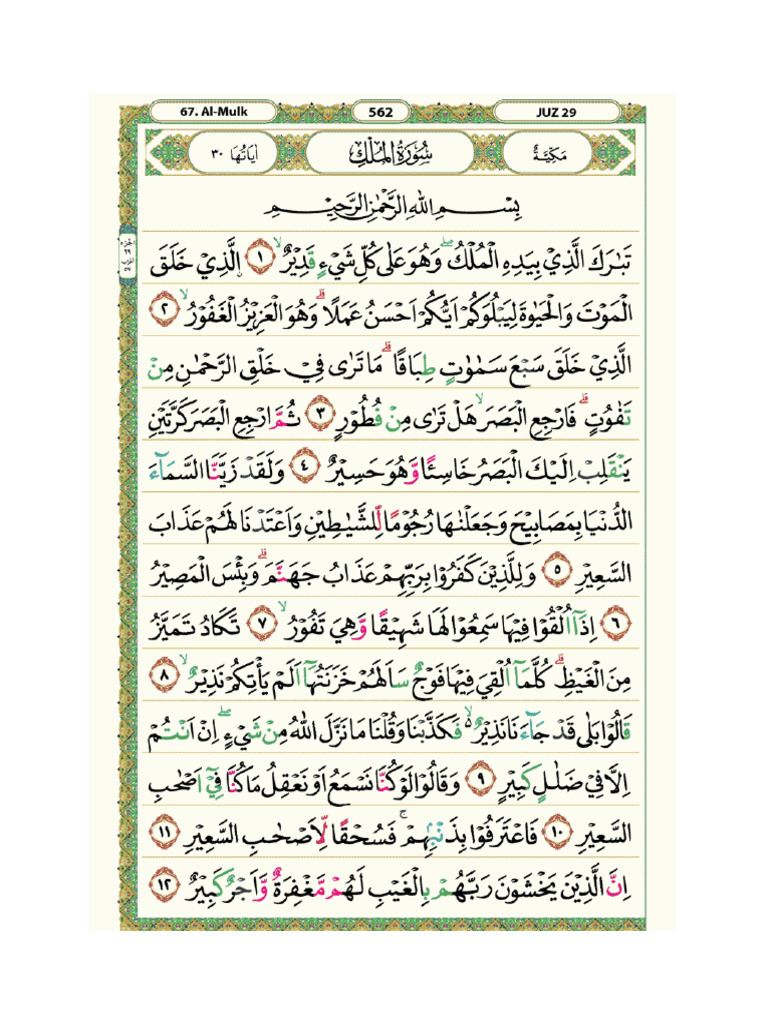 67. Al-Mulk
562
JUZ 29
مَكِّيَّةٌ
سُوْرَةُ الْمُلْكِ
اٰيَاتُهَا ٣٠
بِسْمِ اللّٰهِ الرَّحْمٰنِ الرَّحِيْمِ
تَبٰرَكَ الَّذِيْ بِيَدِهِ الْمُلْكُۖ وَهُوَ عَلٰى كُلِّ شَيْءٍ قَدِيْرٌۙ ١ ۨالَّذِيْ خَلَقَ
الْمَوْتَ وَالْحَيٰوةَ لِيَبْلُوَكُمْ اَيُّكُمْ اَحْسَنُ عَمَلًاۗ وَهُوَ الْعَزِيْزُ الْغَفُوْرُۙ ٢
الَّذِيْ خَلَقَ سَبْعَ سَمٰوٰتٍ طِبَاقًاۗ مَا تَرٰى فِيْ خَلْقِ الرَّحْمٰنِ مِنْ
تَفٰوُتٍۗ فَارْجِعِ الْبَصَرَۙ هَلْ تَرٰى مِنْ فُطُوْرٍ ٣ ثُمَّ ارْجِعِ الْبَصَرَ كَرَّتَيْنِ
يَنْقَلِبْ اِلَيْكَ الْبَصَرُ خَاسِئًا وَّهُوَ حَسِيْرٌ ٤ وَلَقَدْ زَيَّنَّا السَّمَاۤءَ
الدُّنْيَا بِمَصَابِيْحَ وَجَعَلْنٰهَا رُجُوْمًا لِّلشَّيٰطِيْنِ وَاَعْتَدْنَا لَهُمْ عَذَابَ
السَّعِيْرِ ٥ وَلِلَّذِيْنَ كَفَرُوْا بِرَبِّهِمْ عَذَابُ جَهَنَّمَۗ وَبِئْسَ الْمَصِيْرُ
٦ اِذَآ اُلْقُوْا فِيْهَا سَمِعُوْا لَهَا شَهِيْقًا وَّهِيَ تَفُوْرُۙ ٧ تَكَادُ تَمَيَّزُ
مِنَ الْغَيْظِۗ كُلَّمَآ اُلْقِيَ فِيْهَا فَوْجٌ سَاَلَهُمْ خَزَنَتُهَآ اَلَمْ يَأْتِكُمْ نَذِيْرٌۙ ٨
قَالُوْا بَلٰى قَدْ جَاۤءَنَا نَذِيْرٌ ەۙ فَكَذَّبْنَا وَقُلْنَا مَا نَزَّلَ اللّٰهُ مِنْ شَيْءٍۖ اِنْ اَنْتُمْ
اِلَّا فِيْ ضَلٰلٍ كَبِيْرٍ ٩ وَقَالُوْا لَوْ كُنَّا نَسْمَعُ اَوْ نَعْقِلُ مَا كُنَّا فِيْٓ اَصْحٰبِ
السَّعِيْرِ ١٠ فَاعْتَرَفُوْا بِذَنْۢبِهِمْۚ فَسُحْقًا لِّاَصْحٰبِ السَّعِيْرِ ١١
اِنَّ الَّذِيْنَ يَخْشَوْنَ رَبَّهُمْ بِالْغَيْبِ لَهُمْ مَّغْفِرَةٌ وَّاَجْرٌ كَبِيْرٌ ١٢